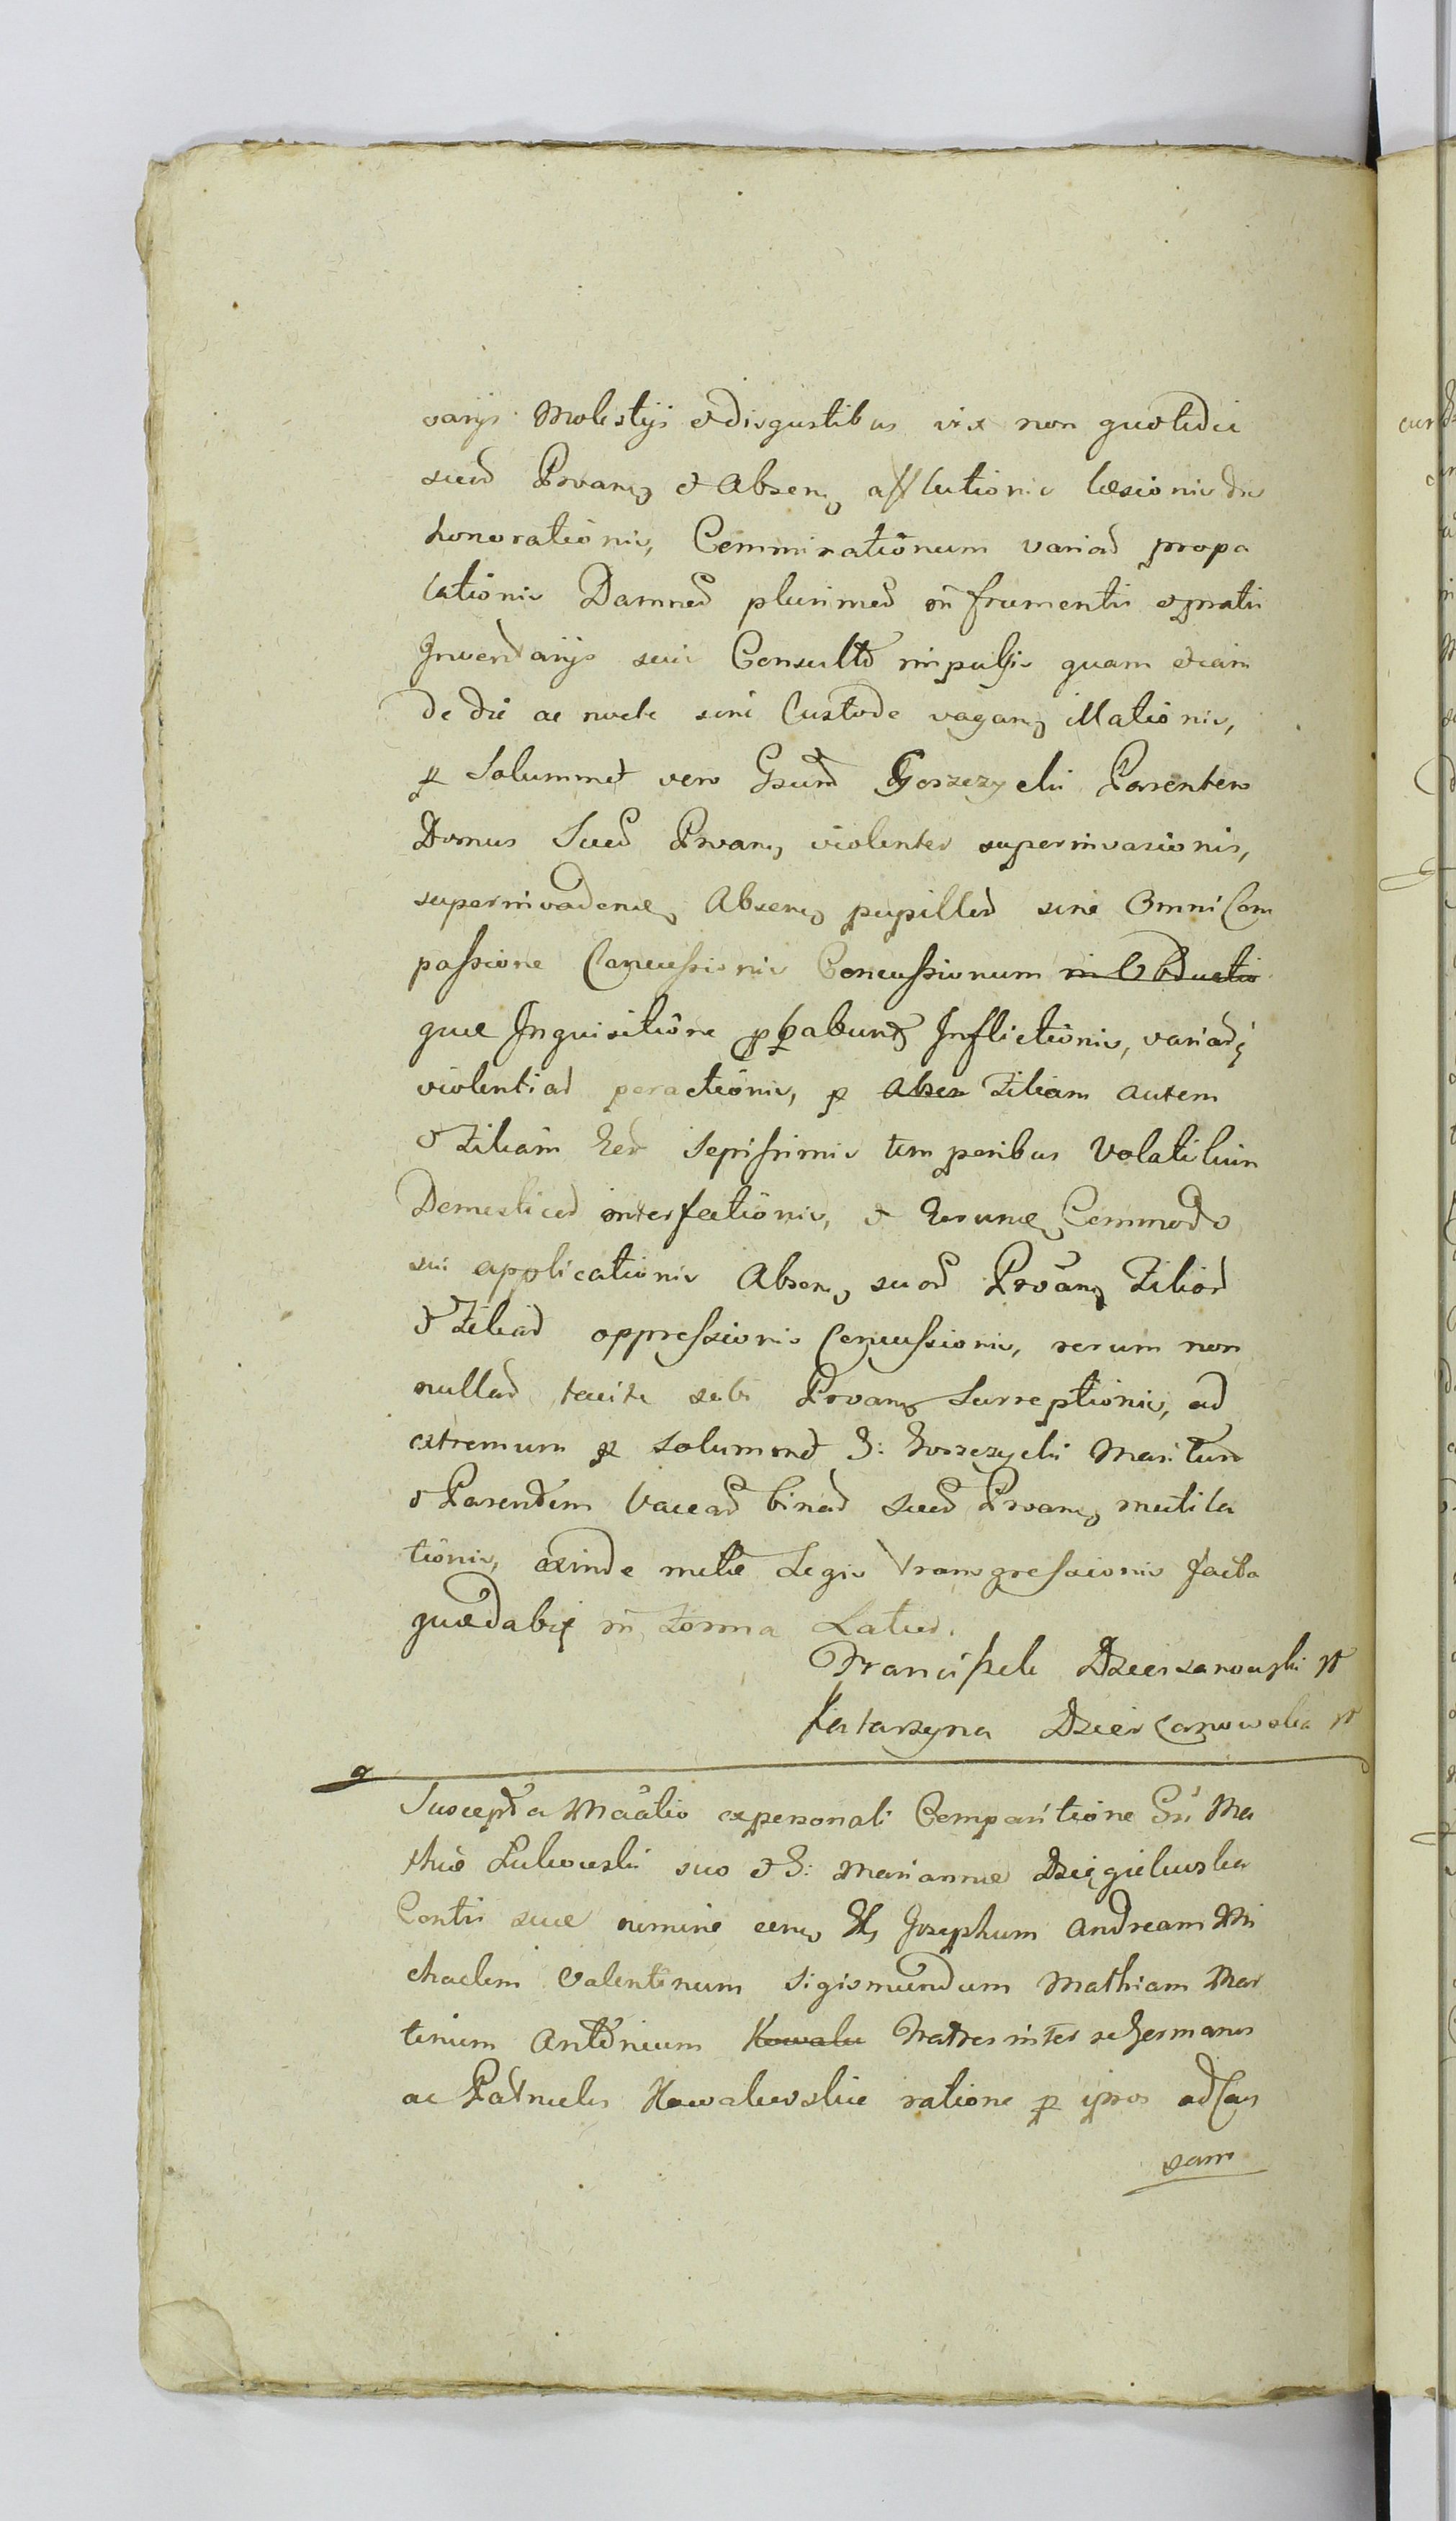 varijs Molestijs et disgustibus vix non quotidie
suorum Provan et Absen afflictionis læsionis de
honorationis, Comminationum variarum propa
lationis Damnorum plurimorum in frumentis et pratis
Inventarijs suis Consulto impulsis quam etiam
de die ac nocte sine Custode vagan illationis,
p Solummet vero Gsum Goszczycki Parentem
Domus Suorum Provan violenter superinvasionis,
superinvadenc Absen pupillorum sine Omni Com
passione Concussionis Concussionum in Obductio
quæ Inquisitione pbabunt Inflictionis, variarumq
violentiarum peractionis, p Absen Filiam autem
et Filiam Ejus sepissimis temporibus Volatilium
Domesticorum interfectionis, et Eorunc Commodo
sui applicationis Absen suorum Provan Filiorum
et Filiarum oppressionis Concussionis, rerum non
nullarum tacite sibi Provan Surreptionis, ad
extremum p solummet G: Goszczycki Maritum
et Parentem Vaccarum binarum suorum Provan mutila
tionis, exinde metæ Legis transgressionis facta
quædabit in Forma Latius.
Franciszek Dzierzanowski
Katarzyna Dzierzanowska
Suscepta Mãtio ex personali Comparitione Gsi Ma
thiæ Lukowski suo et G: Mariannæ Dzięgielewska
Contis suæ nomine con Josephum Andream Mi
chaelem Valentinum Sigismundum Mathiam Mar
tinum Antonium Kowale Fratres inter se Germanos
ac Patrueles Kowalewskie ratione p ipsos ad Cau
sam